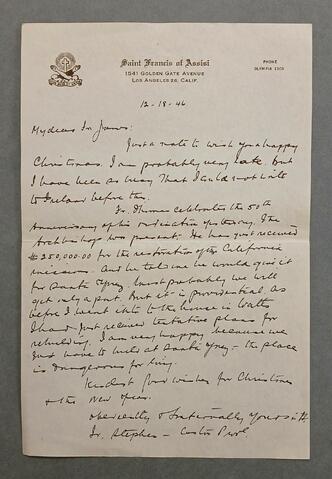 Saint Francis of Assisi
1541 GOLDEN GATE AVENUE
LOS ANGELES 26, CALIF.
PHONE
OLYMPIA
12-18-46
My dear Fr. James:
Just a note to wish you a happy
Christmas. I am probably very late. But
I have been so busy that I could not write
to Ireland before this.
Fr. Thomas celebrated the 50th
Anniversary of his ordination yesterday. The
Archbishop was present. He has just received
$250,000.00 for the restoration of the California
missions. And he told me he would give it
for Santa Ynez, but probably we will
get only a part. But it is providential as
before I went to the house in
I had just received tentative plans for
rebuilding. I am very happy because we
just have to build at Santa Ynez - the place
is dangerous for living.
Kindest good wishes for Christmas
& the New Year.
obediently & fraternally yours in
Fr. Stephen -